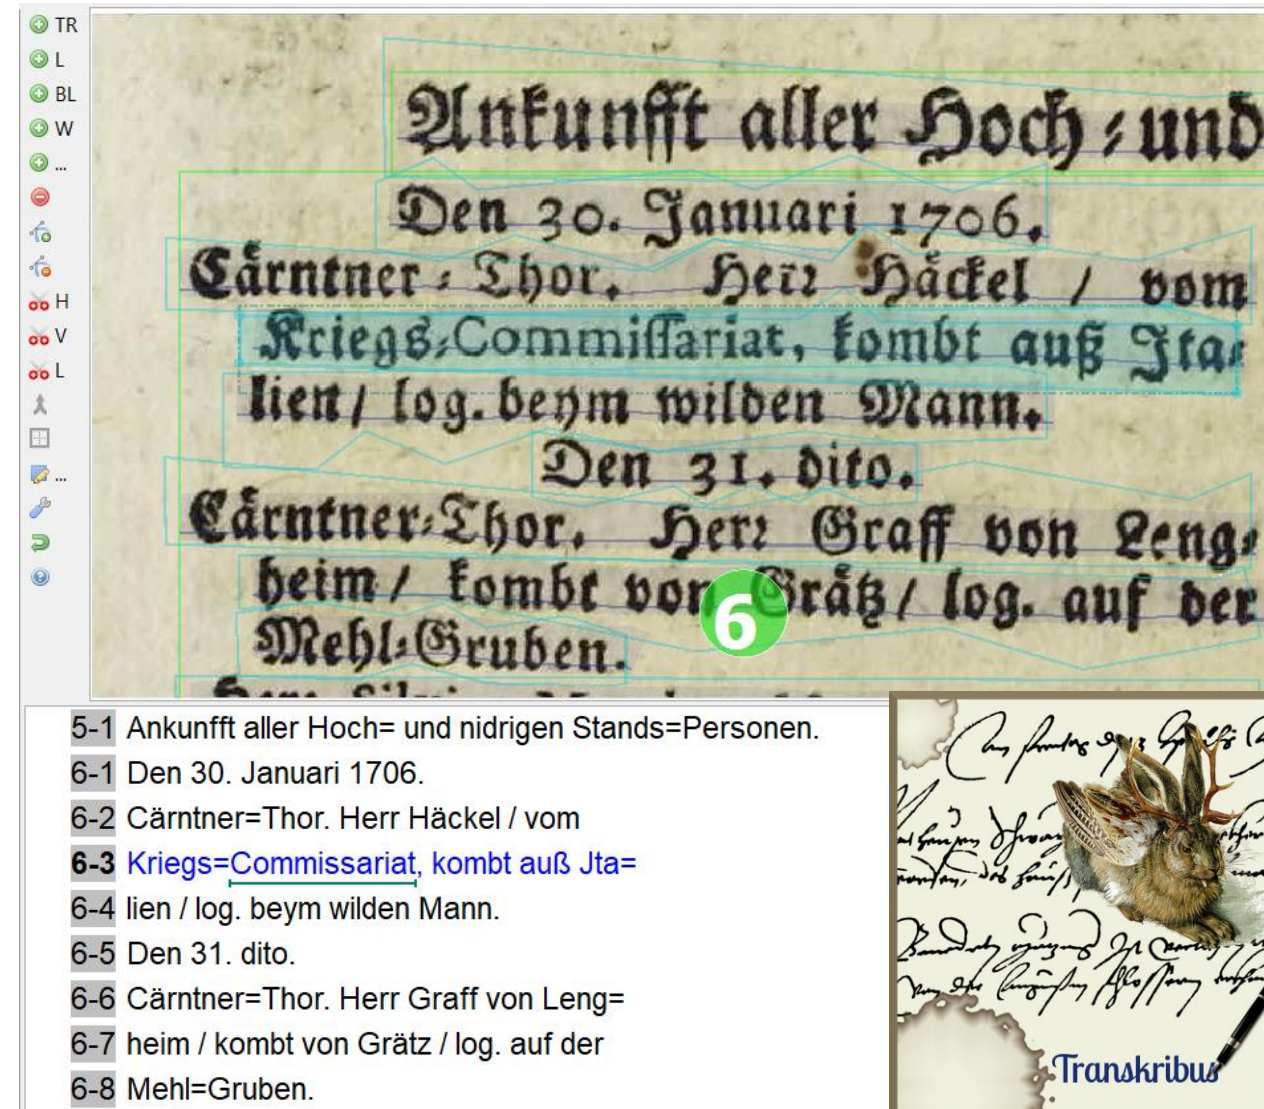 TR
L
BL
W
...
H
V
L
...
Ankunfft aller Hoch⸗und
Den 30. Januari 1706.
Cårntner⸗Thor. Herr Håckel / vom
Kriegs⸗Commissariat, kombt auß Jta⸗
lien / log. beym wilden Mann.
Den 31. dito.
Cårntner⸗Thor. Herr Graff von Leng⸗
heim / kombt von Gråtz / log. auf der
Mehl⸗Gruben.
6
5-1 Ankunfft aller Hoch= und nidrigen Stands=Personen.
6-1 Den 30. Januari 1706.
6-2 Cärntner=Thor. Herr Häckel / vom
6-3 Kriegs=Commissariat, kombt auß Jta=
6-4 lien / log. beym wilden Mann.
6-5 Den 31. dito.
6-6 Cärntner=Thor. Herr Graff von Leng=
6-7 heim / kombt von Grätz / log. auf der
6-8 Mehl=Gruben.
Transkribus